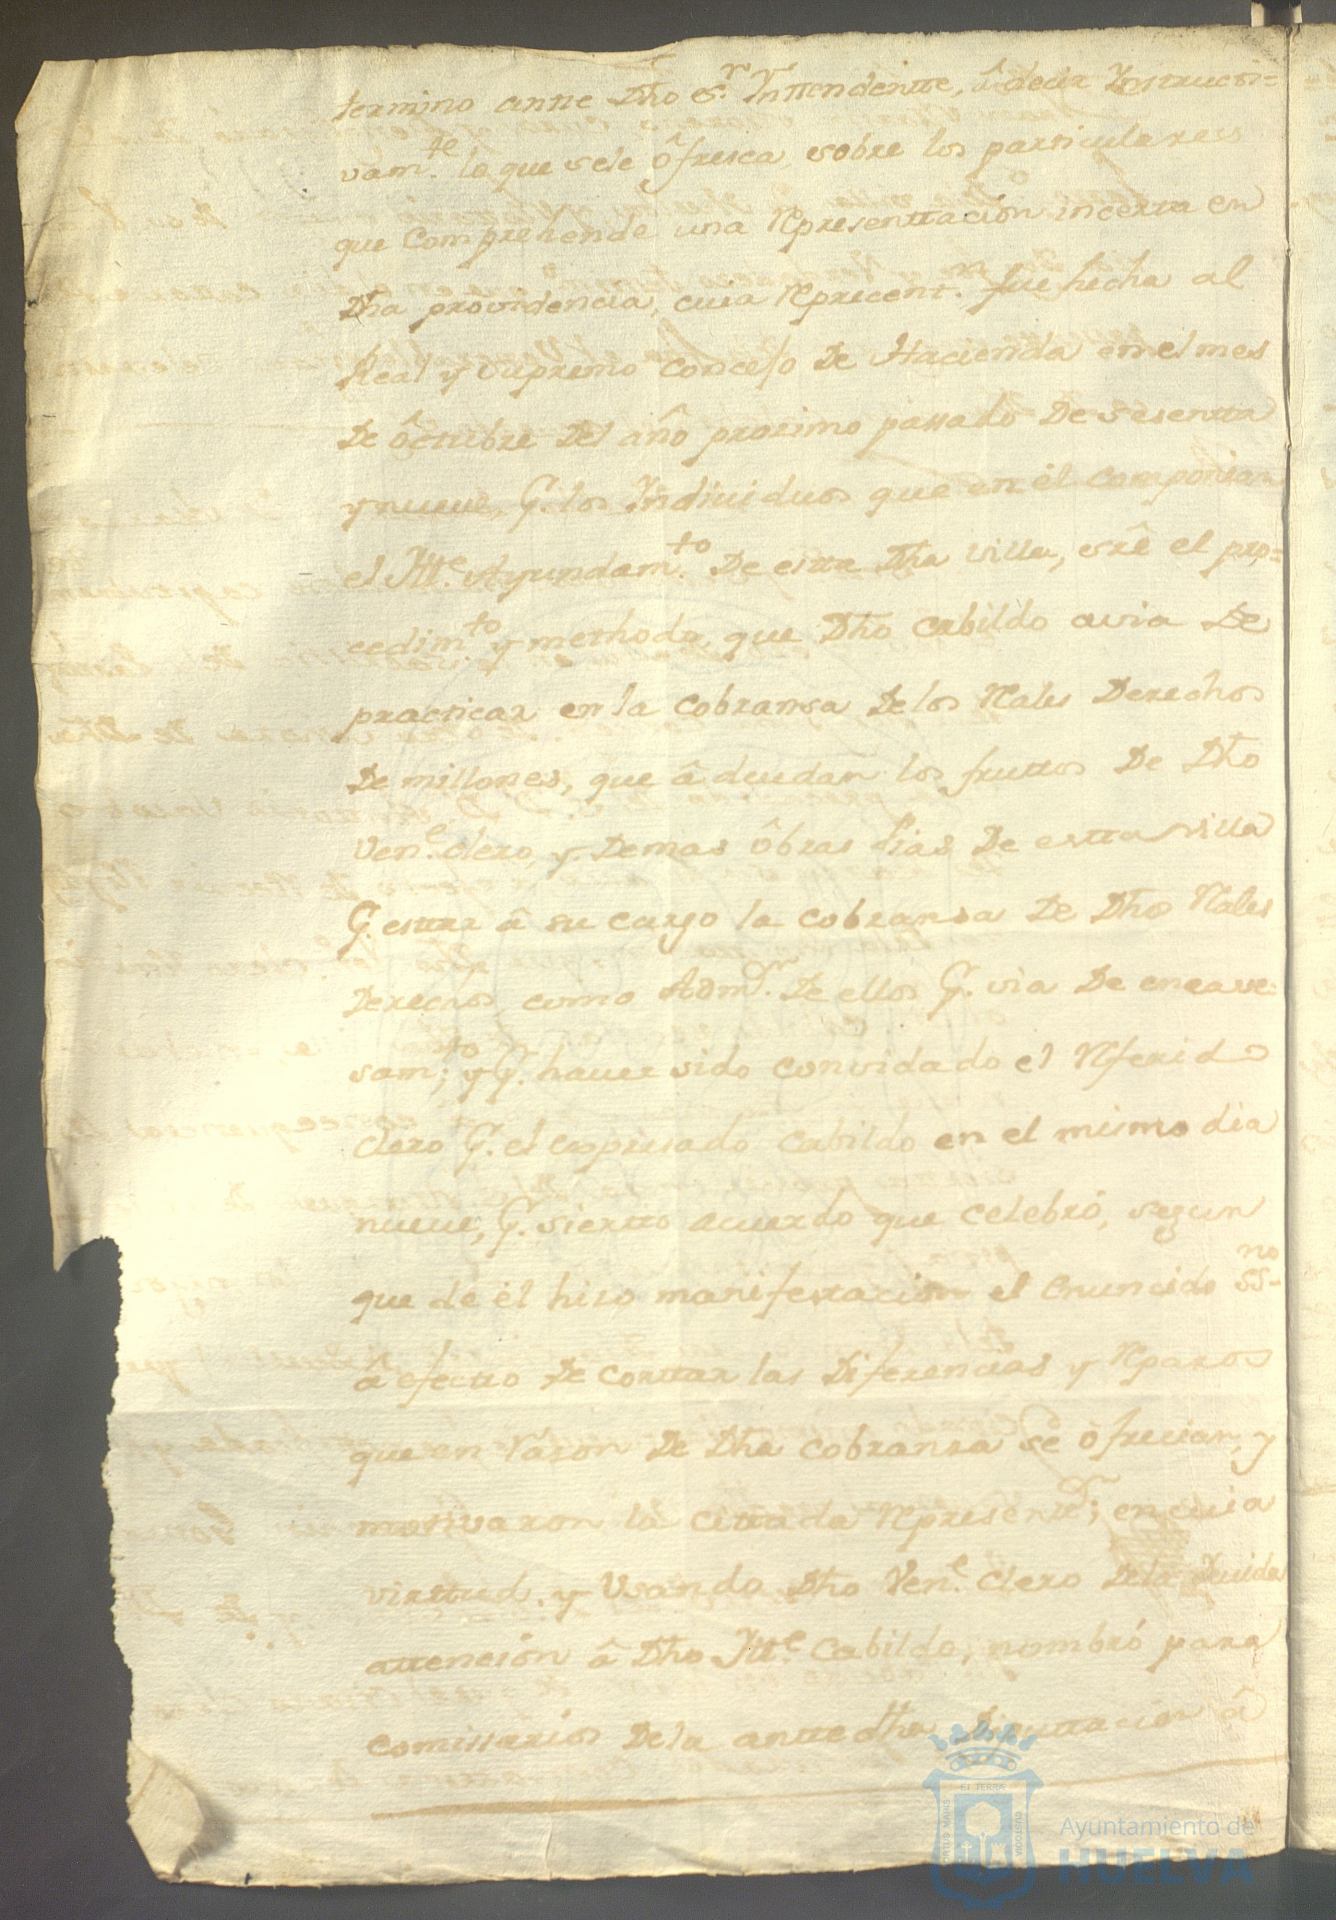 termino antte Dho S.r Ynttendentte, â decir Ynstructi=
vam.te lo que se le ôfresca sobre los particulares
que Comprehende una Rpresenttacion incerta en
Dha providencia, cuia Rprecent.n fue hecha al
Real y Supremo Concejo De Hacienda en el mes
De ôctubre Del año proximo passado De sesentta
y nueve, P. los Yndividuos que en el componian
el Ill.e Ayundam.to De estta Dha villa, srê el pro=
cedim.to y methodo, que Dho Cabildo avia De
practicar en la cobransa De los Rales Derechos
De millones, que âdeudan los fruttos De Dho
Ven.e clero, y Demas ôbras Pias De estta villa
P. esttar â su cargo la cobransa De Dhos Rales
Derechos como Adm.or De ellos P. via De encave=
sam.to; y P. haver sido convidado el Rferido
clero P. el expresado Cabildo en el mismo dia
nueve, P. sierto acuerdo que celebró, segun
que de él hizo manifestacion el Enunciado ss.no
â efectto De corttar las Diferencias y Rparos
que en razon De Dha cobransa se ôfrecian, y
mottivaron la cittada Rpresentt.on; en cuia
virttud, y Usando Dho Ven.e Clero De la Devida
attencion â Dho Ill.e Cabildo, nombró para
comissarios De la antte dha Diputtacion â
ET TERRÆ
PORTUS MARIS
CUSTODIA
Ayuntamiento de
HUELVA